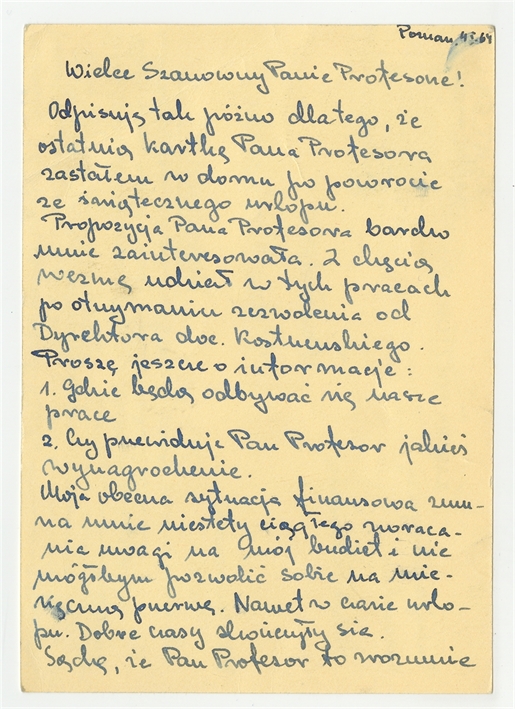 Poznań. 4.5.64
Wielce Szanowny Panie Profesorze!
Odpisuję tak późno dlatego, że
ostatnią kartkę Pana Profesora
zastałem w domu po powrocie
ze świątecznego urlopu.
Propozycja Pana Profesora bardzo
mnie zainteresowała. Z chęcią
wezmę udział w tych pracach
po otrzymaniu zezwolenia od
Dyrektora doc. Kostrzewskiego.
Proszę jeszcze o informacje:
1. Gdzie będą odbywać się nasze
prace
2. Czy przewiduje Pan Profesor jakieś
wynagrodzenie.
Moja obecna sytuacja finansowa zmu-
sza mnie niestety ciągłego zwraca-
nia uwagi na mój budżet i nie
mógłbym pozwolić sobie na mie-
sięczną przerwę. Nawet w czasie urlo-
pu. Dobre czasy skończyły się.
Sądzę, że Pan Profesor to zrozumie